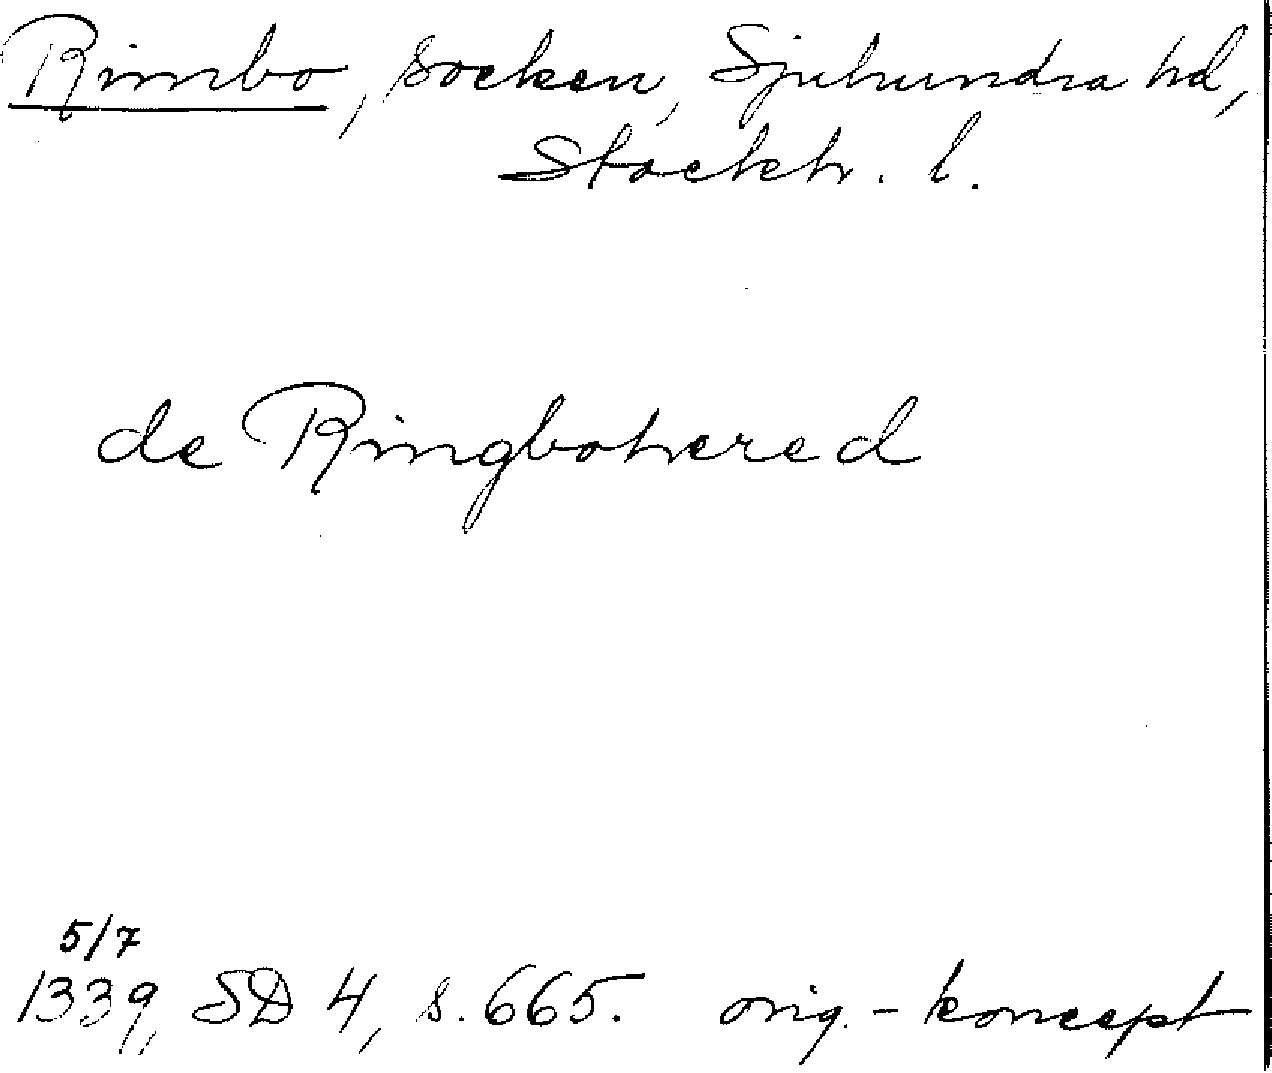 Rimbo, socken, Sjuhundra hd,
Stockh. l.
de Ringbohered
5/7
1339, SD 4, s. 665. orig.-koncept